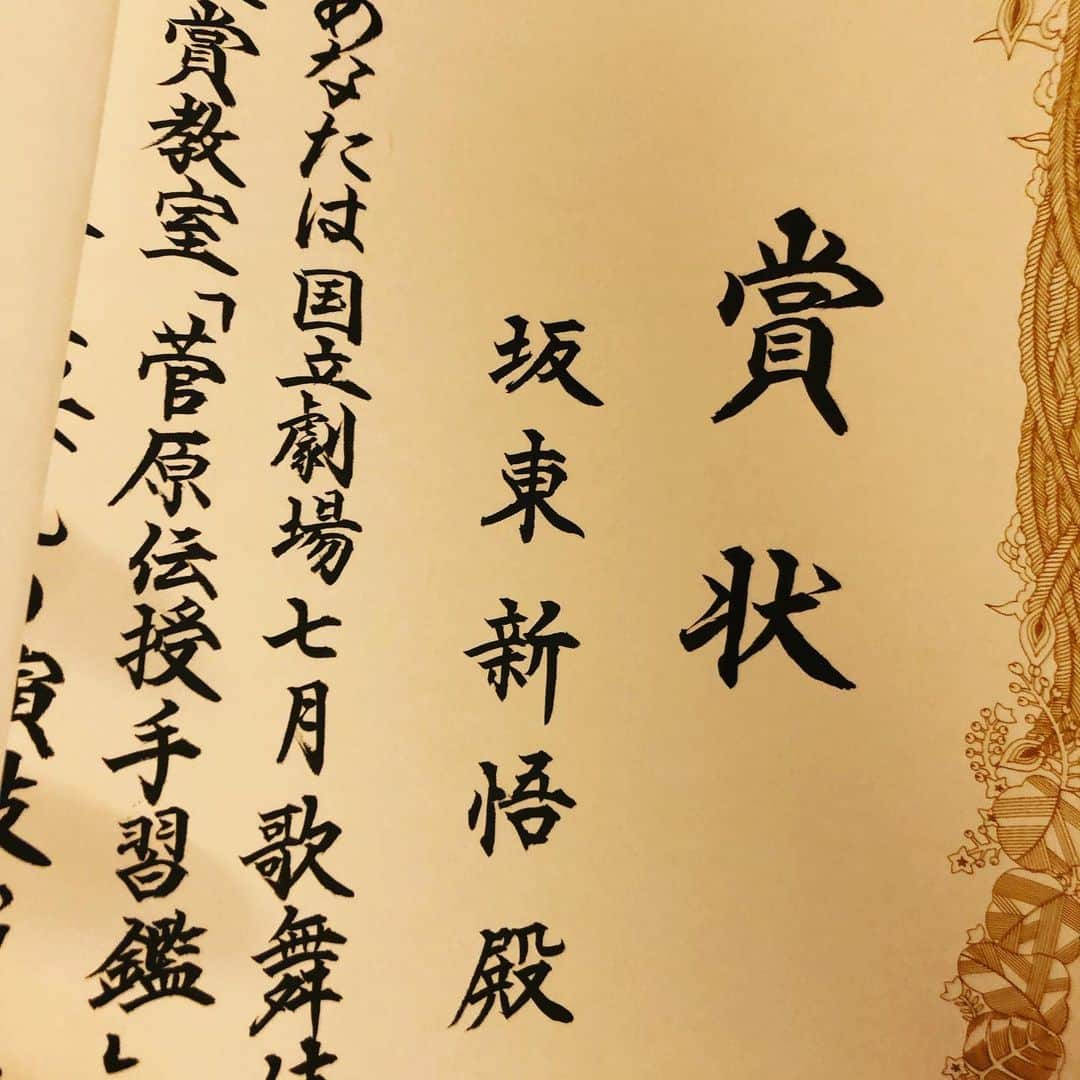 賞状
坂東新悟殿
あなたは国立劇場七月歌舞伎
賞教室「菅原伝授手習鑑」
演技